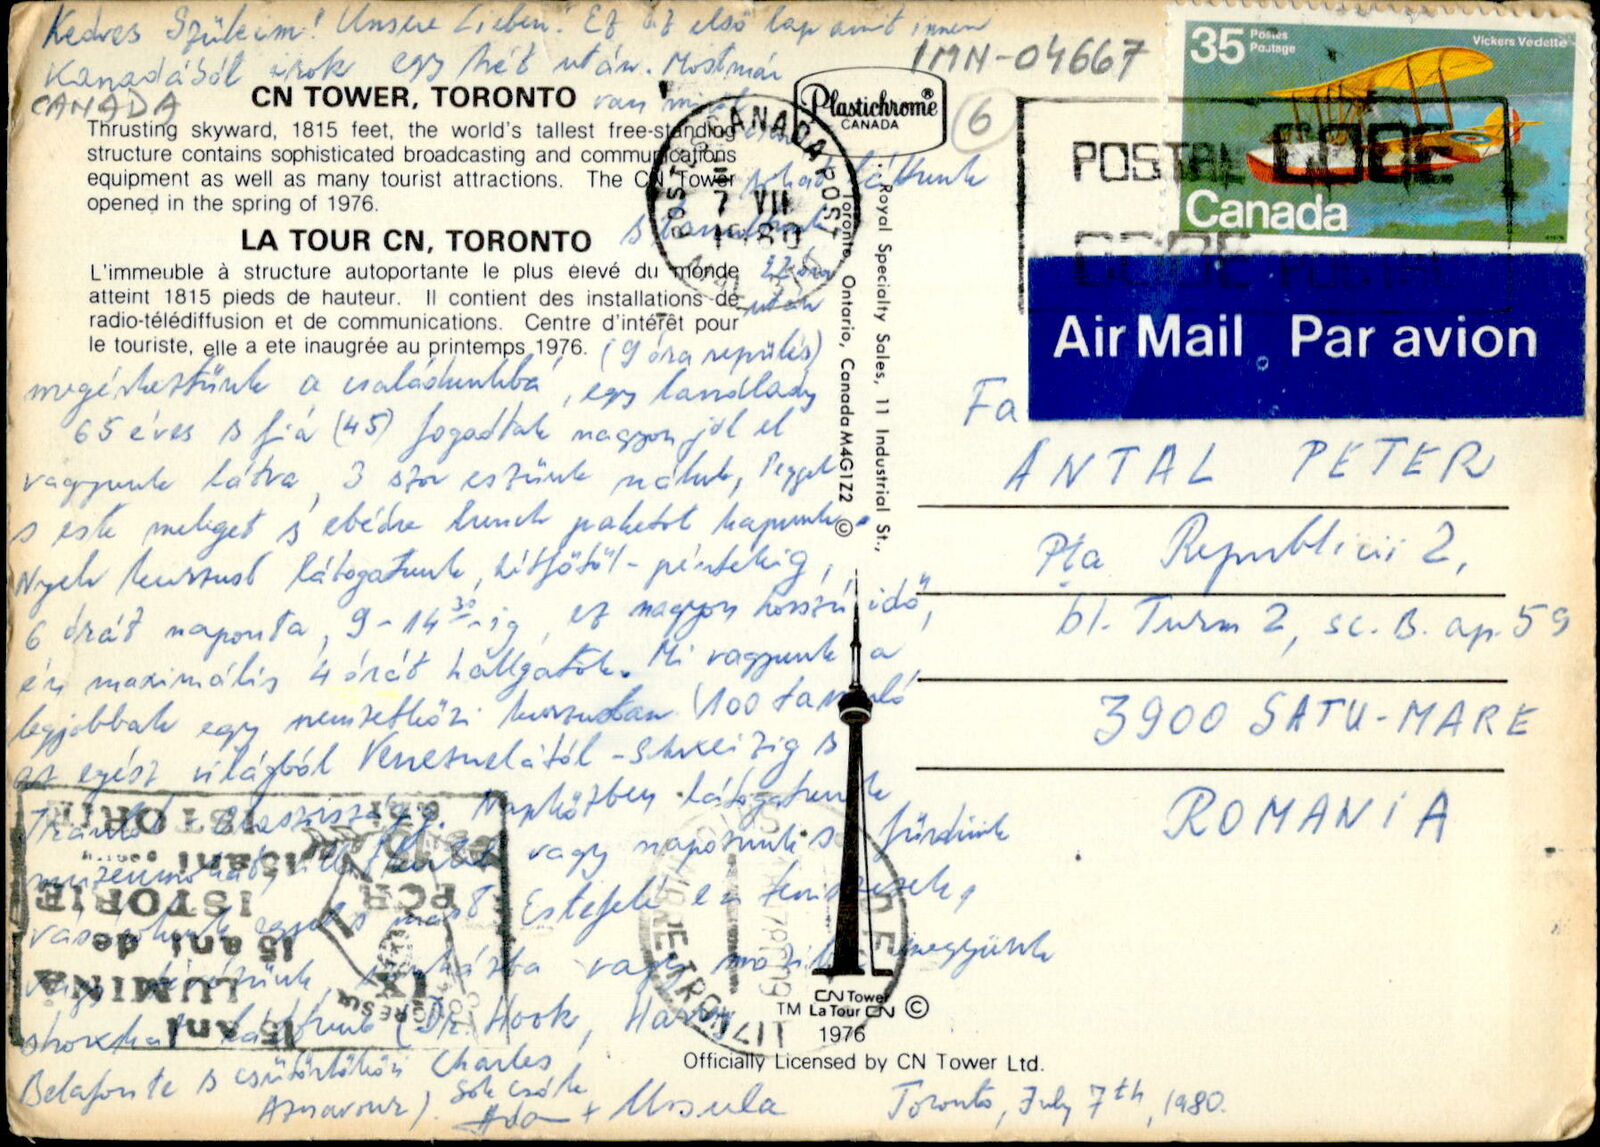 Kedves Szüleim! Unsere Lieben! Ez az első lap amit innen
Kanadából írok egy hét után. Mostmár
CANADA
IMN-04667
6
CN TOWER, TORONTO
van miről
Thrusting skyward, 1815 feet, the world's tallest free-standing
structure contains sophisticated broadcasting and communications
equipment as well as many tourist attractions. The CN Tower
opened in the spring of 1976.
LA TOUR CN, TORONTO
L'immeuble à structure autoportante le plus élevé du monde
atteint 1815 pieds de hauteur. Il contient des installations de
radio-télédiffusion et de communications. Centre d'intérêt pour
le touriste, elle a ete inaugrée au printemps 1976.
sokat láttunk
s tanultunk
22 óra
után
(9 óra repülés)
megérkeztünk a családunkba, egy landlady
65 éves s fia (45) fogadtak nagyon jól el
vagyunk látva, 3 szor eszünk náluk, reggel
s este meleget s ebédre lunch paketot kapunk.
Nyelv kurzust látogatunk, hétfőtől-péntekig,
6 órát naponta, 9-14³⁰-ig, ez nagyon hosszú idő,
én maximális 4 órát hallgatok. Mi vagyunk a
legjobbak egy nemzetközi kurzusban (100 tanuló
az egész világból Venezuelától - Schweizig s
Napközben látogatunk
vagy naposunk s fürdünk
Estefelé
vagy moziba megyünk
(Dr. Hook, Harry
Belafonte s csütörtökön Charles
Aznavour). Sok csók
+ Ursula
Toronto, July 7th, 1980.
Plastichrome®
CANADA
Royal Specialty Sales, 11 Industrial St.,
Toronto, Ontario, Canada M4G1Z2 ©
CANADA POST
POSTES
7 VII
1980
35 Postes
Postage
Vickers Vedette
Canada
POSTAL CODE
CODE POSTAL
Air Mail Par avion
Fa
ANTAL PETER
Pta Republicii 2,
bl. Turm 2, sc. B. ap. 59
3900 SATU-MARE
ROMANIA
15 ani
LUMINA
15 ani de
ISTORIE
PCR
IX
ISTORIE
CN Tower
TM La Tour CN ©
1976
Officially Licensed by CN Tower Ltd.